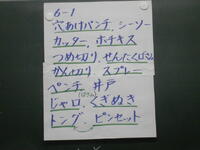 6-1
穴あけパンチ、シーソー
カッター、ホチキス
つめ切り、せんたくばさみ
かん切り、スプレー
ペンチ 井戸
じゃ口、くぎぬき
トング、ピンセット